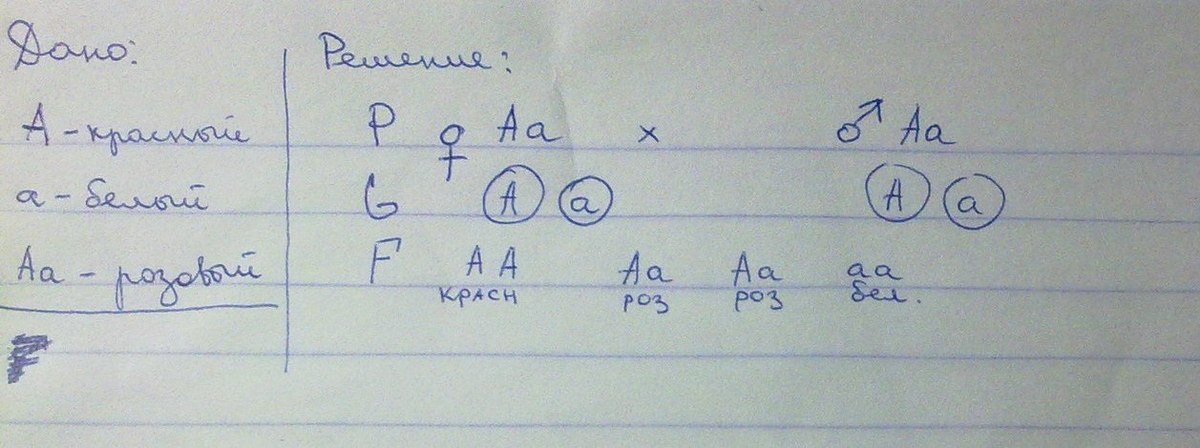 Дано:
А - красный
а - белый
Аа - розовый
Решение:
P ♀ Aa × ♂ Aa
G A a A a
F AA Aa Aa aa
красн роз роз бел.